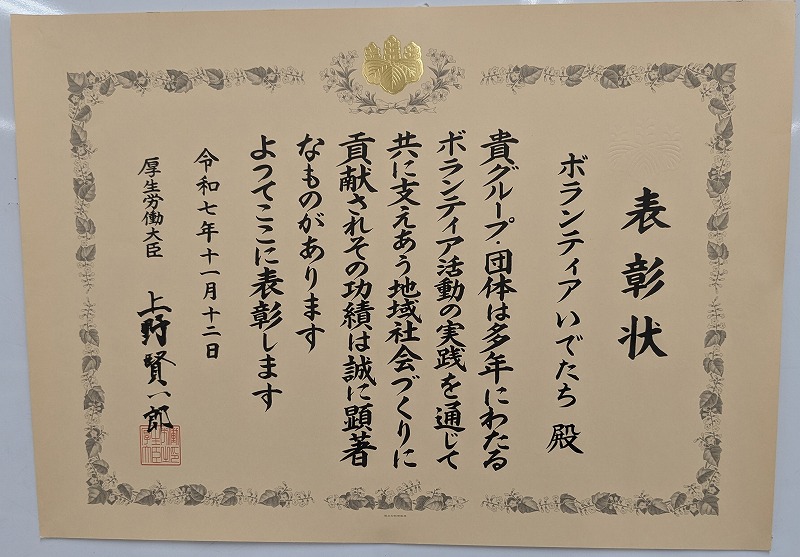 表彰状
ボランティアいでたち 殿
貴グループ・団体は多年にわたる
ボランティア活動の実践を通じて
共に支えあう地域社会づくりに
貢献されその功績は誠に顕著
なものがあります
よってここに表彰します
令和七年十一月十二日
厚生労働大臣 上野賢一郎